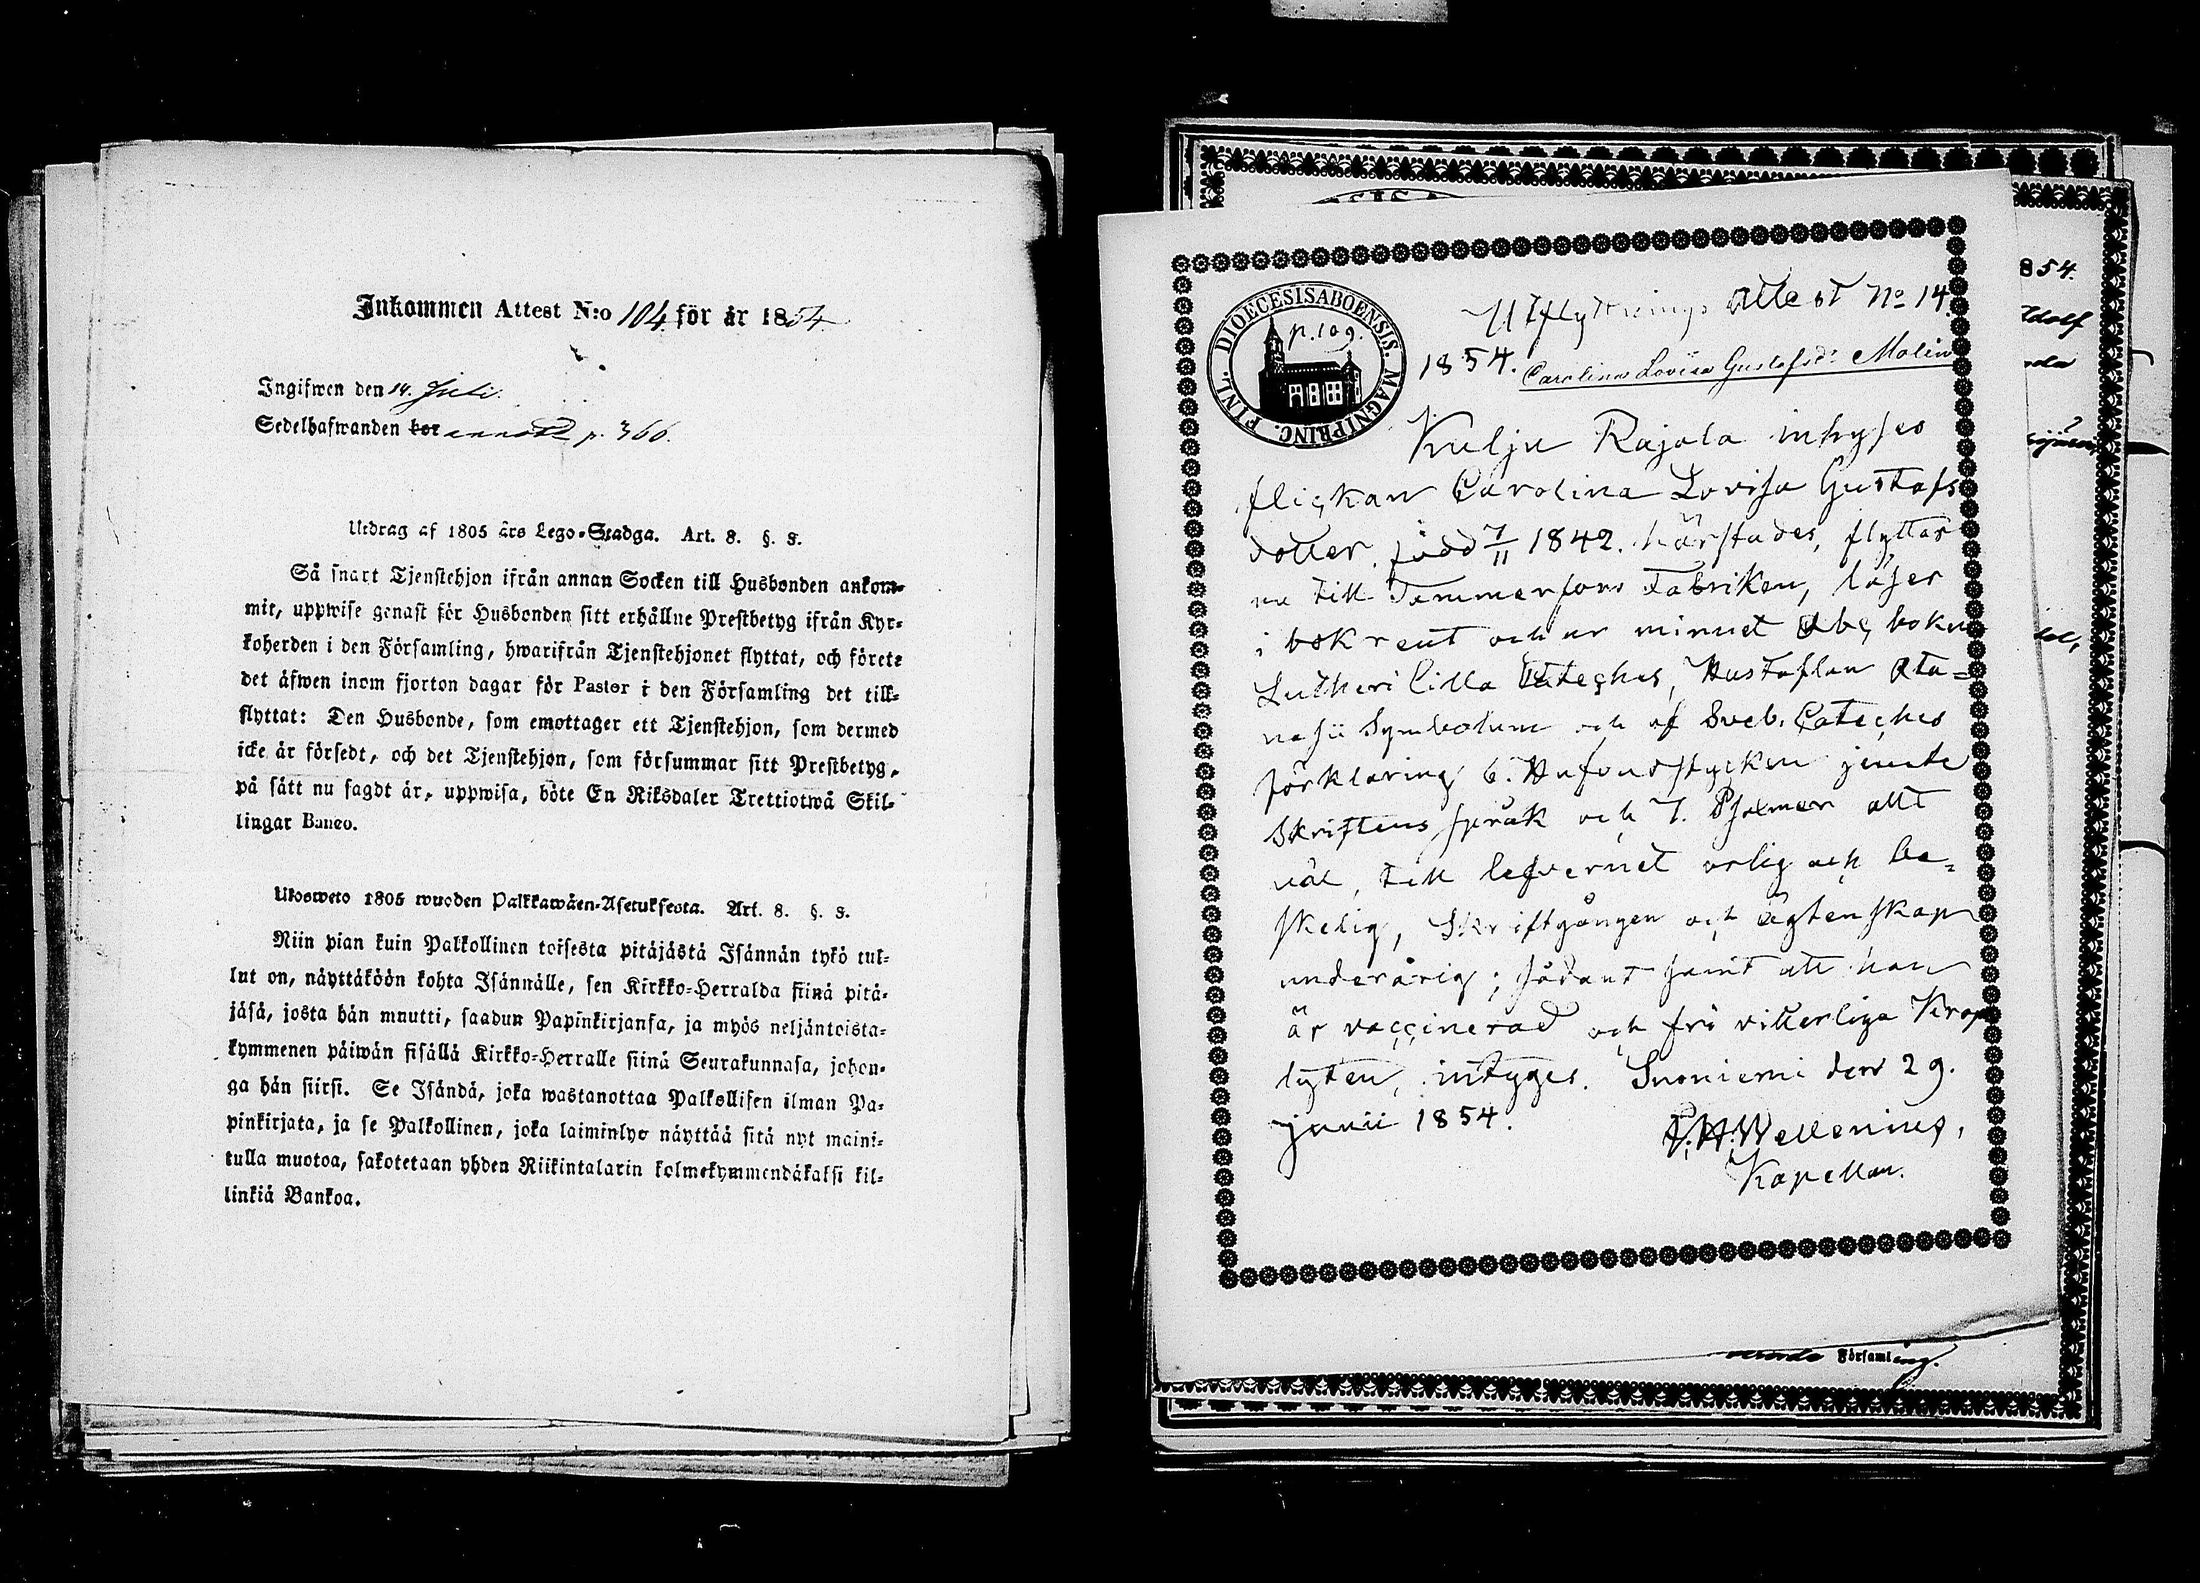 Inkommen Attest N:o 104 för år 1854
Ingifwen den 14. Juli.
Sedelhafwanden bor annotd p. 366.
Utdrag af 1805 års Lego-Stadga. Art. 8. §. 8.
Så snart Tjenstehjon ifrån annan Socken till Husbonden ankom-
mit, uppwise genast för Husbonden sitt erhållne Prestbetyg ifrån Kyr-
koherden i den Församling, hwarifrån Tjenstehjonet flyttat, och förete
det äfwen inom fjorton dagar för Pastor i den Församling det till-
flyttat: Den Husbonde, som emottager ett Tjenstehjon, som dermed
icke är försedt, och det Tjenstehjon, som försummar sitt Prestbetyg,
på sätt nu sagdt är, uppwisa, böte En Riksdaler Trettiotwå Skil-
lingar Banco.
Ulosweto 1805 wuoden Palkkawäen-Asetuksesta. Art. 8. §. 8.
Niin pian kuin Palkollinen toisesta pitäjästä Isännän tykö tul-
lut on, näyttäköön kohta Isännälle, sen Kirkko-Herralda siinä pitä-
jäsä, josta hän muutti, saadun Papinkirjansa, ja myös neljäntoista-
kymmenen päiwän sisällä Kirkko-Herralle siinä Seurakunnasa, johon-
ga hän siirsi. Se Isändä, joka wastanottaa Palkollisen ilman Pa-
pinkirjata, ja se Palkollinen, joka laiminlyö näyttää sitä nyt maini-
tulla muotoa, sakotetaan yhden Riikintalarin kolmekymmendäkaksi kil-
linkiä Bankoa.
DIOECESIS ABOENSIS. MAGNI PRINC. FINL.
p. 109.
Utflyttnings attest No 14
1854. Carolina Lovisa Gustafsdr Molin
Kulju Rajala inhyses
flickan Carolina Lovisa Gustafs
dotter, född 7/11 1842. härstädes, flyttar
nu till Tammerfors Fabriken, läser
i bok rent och ur minnet Abc boken
Lutheri lilla Cateches, Hustaflan Ata=
nasii Symbolum och af Sveb. Cateches
förklaring 6. Hufvudstycken jemte
Skriftens språk och 7. Psalmer allt
väl, till lefvernet ärlig och be=
skedlig, Skriftgången och ägtenskap
underårig; sådant samt att hon
är vaccinerad och fri vitterliga Krop
lyten, intyges. Suoniemi den 29.
junii 1854.
Wellenius,
Kapellan.
854.
Församling.